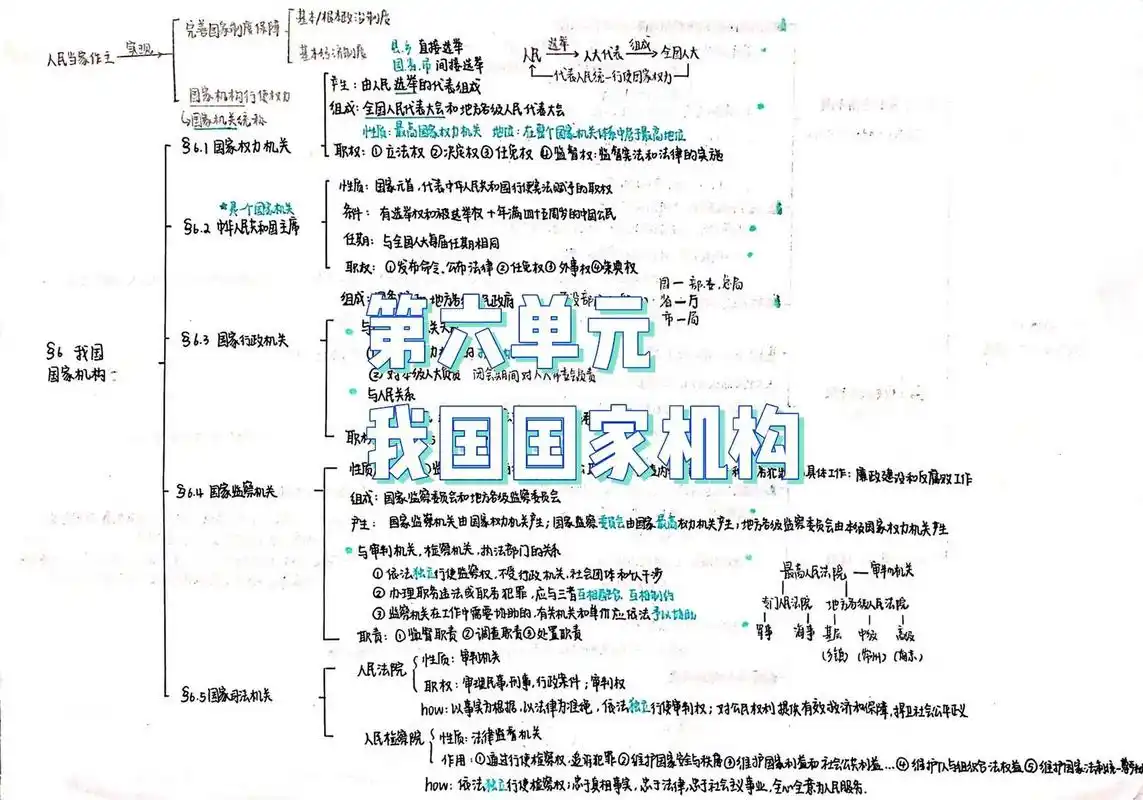 人民当家作主 实现
完善国家制度保障
基本/根本政治制度
基本经济制度
县.乡 直接选举
国.省.市 间接选举
人民 选举 人大代表 组成 全国人大
代表人民统一行使国家权力
国家机构行使权力
国家机关统称
§6 我国
国家机构
§6.1 国家权力机关
产生：由人民选举的代表组成
组成：全国人民代表大会和地方各级人民代表大会
性质：最高国家权力机关 地位：在整个国家机关体系中居于最高地位
职权：①立法权 ②决定权 ③任免权 ④监督权：监督宪法和法律的实施
★是个国家机关
§6.2 中华人民共和国主席
性质：国家元首，代表中华人民共和国行使宪法赋予的职权
条件：有选举权和被选举权 + 年满四十五周岁的中国公民
任期：与全国人大每届任期相同
职权：①发布命令、公布法律 ②任免权 ③外事权 ④荣典权
§6.3 国家行政机关
组成：
国一部.委.总局
省一厅
市一局
第六单元
②对本级人大负责 闭会期间对人大常委会负责
与人民关系
我国国家机构
§6.4 国家监察机关
具体工作：廉政建设和反腐败工作
组成：国家监察委员会和地方各级监察委员会
产生：国家监察机关由国家权力机关产生；国家监察委员会由国家最高权力机关产生，地方各级监察委员会由本级国家权力机关产生
与审判机关，检察机关，执法部门的关系
①依法独立行使监察权，不受行政机关，社会团体和个人干涉
②办理职务违法或职务犯罪，应与三者互相配合 互相制约
③监察机关在工作中需要协助的，有关机关和单位应依法予以协助
职责：①监督职责 ②调查职责 ③处置职责
最高人民法院 — 审判机关
专门人民法院 地方各级人民法院
军事 海事 基层 中级 高级
§6.5 国家司法机关
人民法院
性质：审判机关
职权：审理民事,刑事,行政案件；审判权
how：以事实为根据，以法律为准绳，依法独立行使审判权；对公民权利提供有效救济和保障，捍卫社会公平正义
人民检察院
性质：法律监督机关
作用：①通过行使检察权，追诉犯罪 ②维护国家安全与秩序 ③维护国家利益和社会公共利益… ④维护个人与组织合法权益 ⑤维护国家法制统一
how：依法独立行使检察权；忠于真相事实，忠于法律，忠于社会主义事业，全心全意为人民服务.